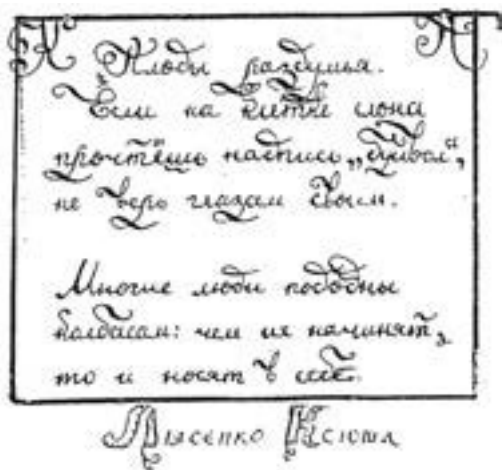 Плоды раздумья.
Если на клетке слона
прочтёшь надпись „буйвол“,
не верь глазам своим.
Многие люди подобны
колбасам: чем их начинят,
то и носят в себе.
Лысенко Ксюша